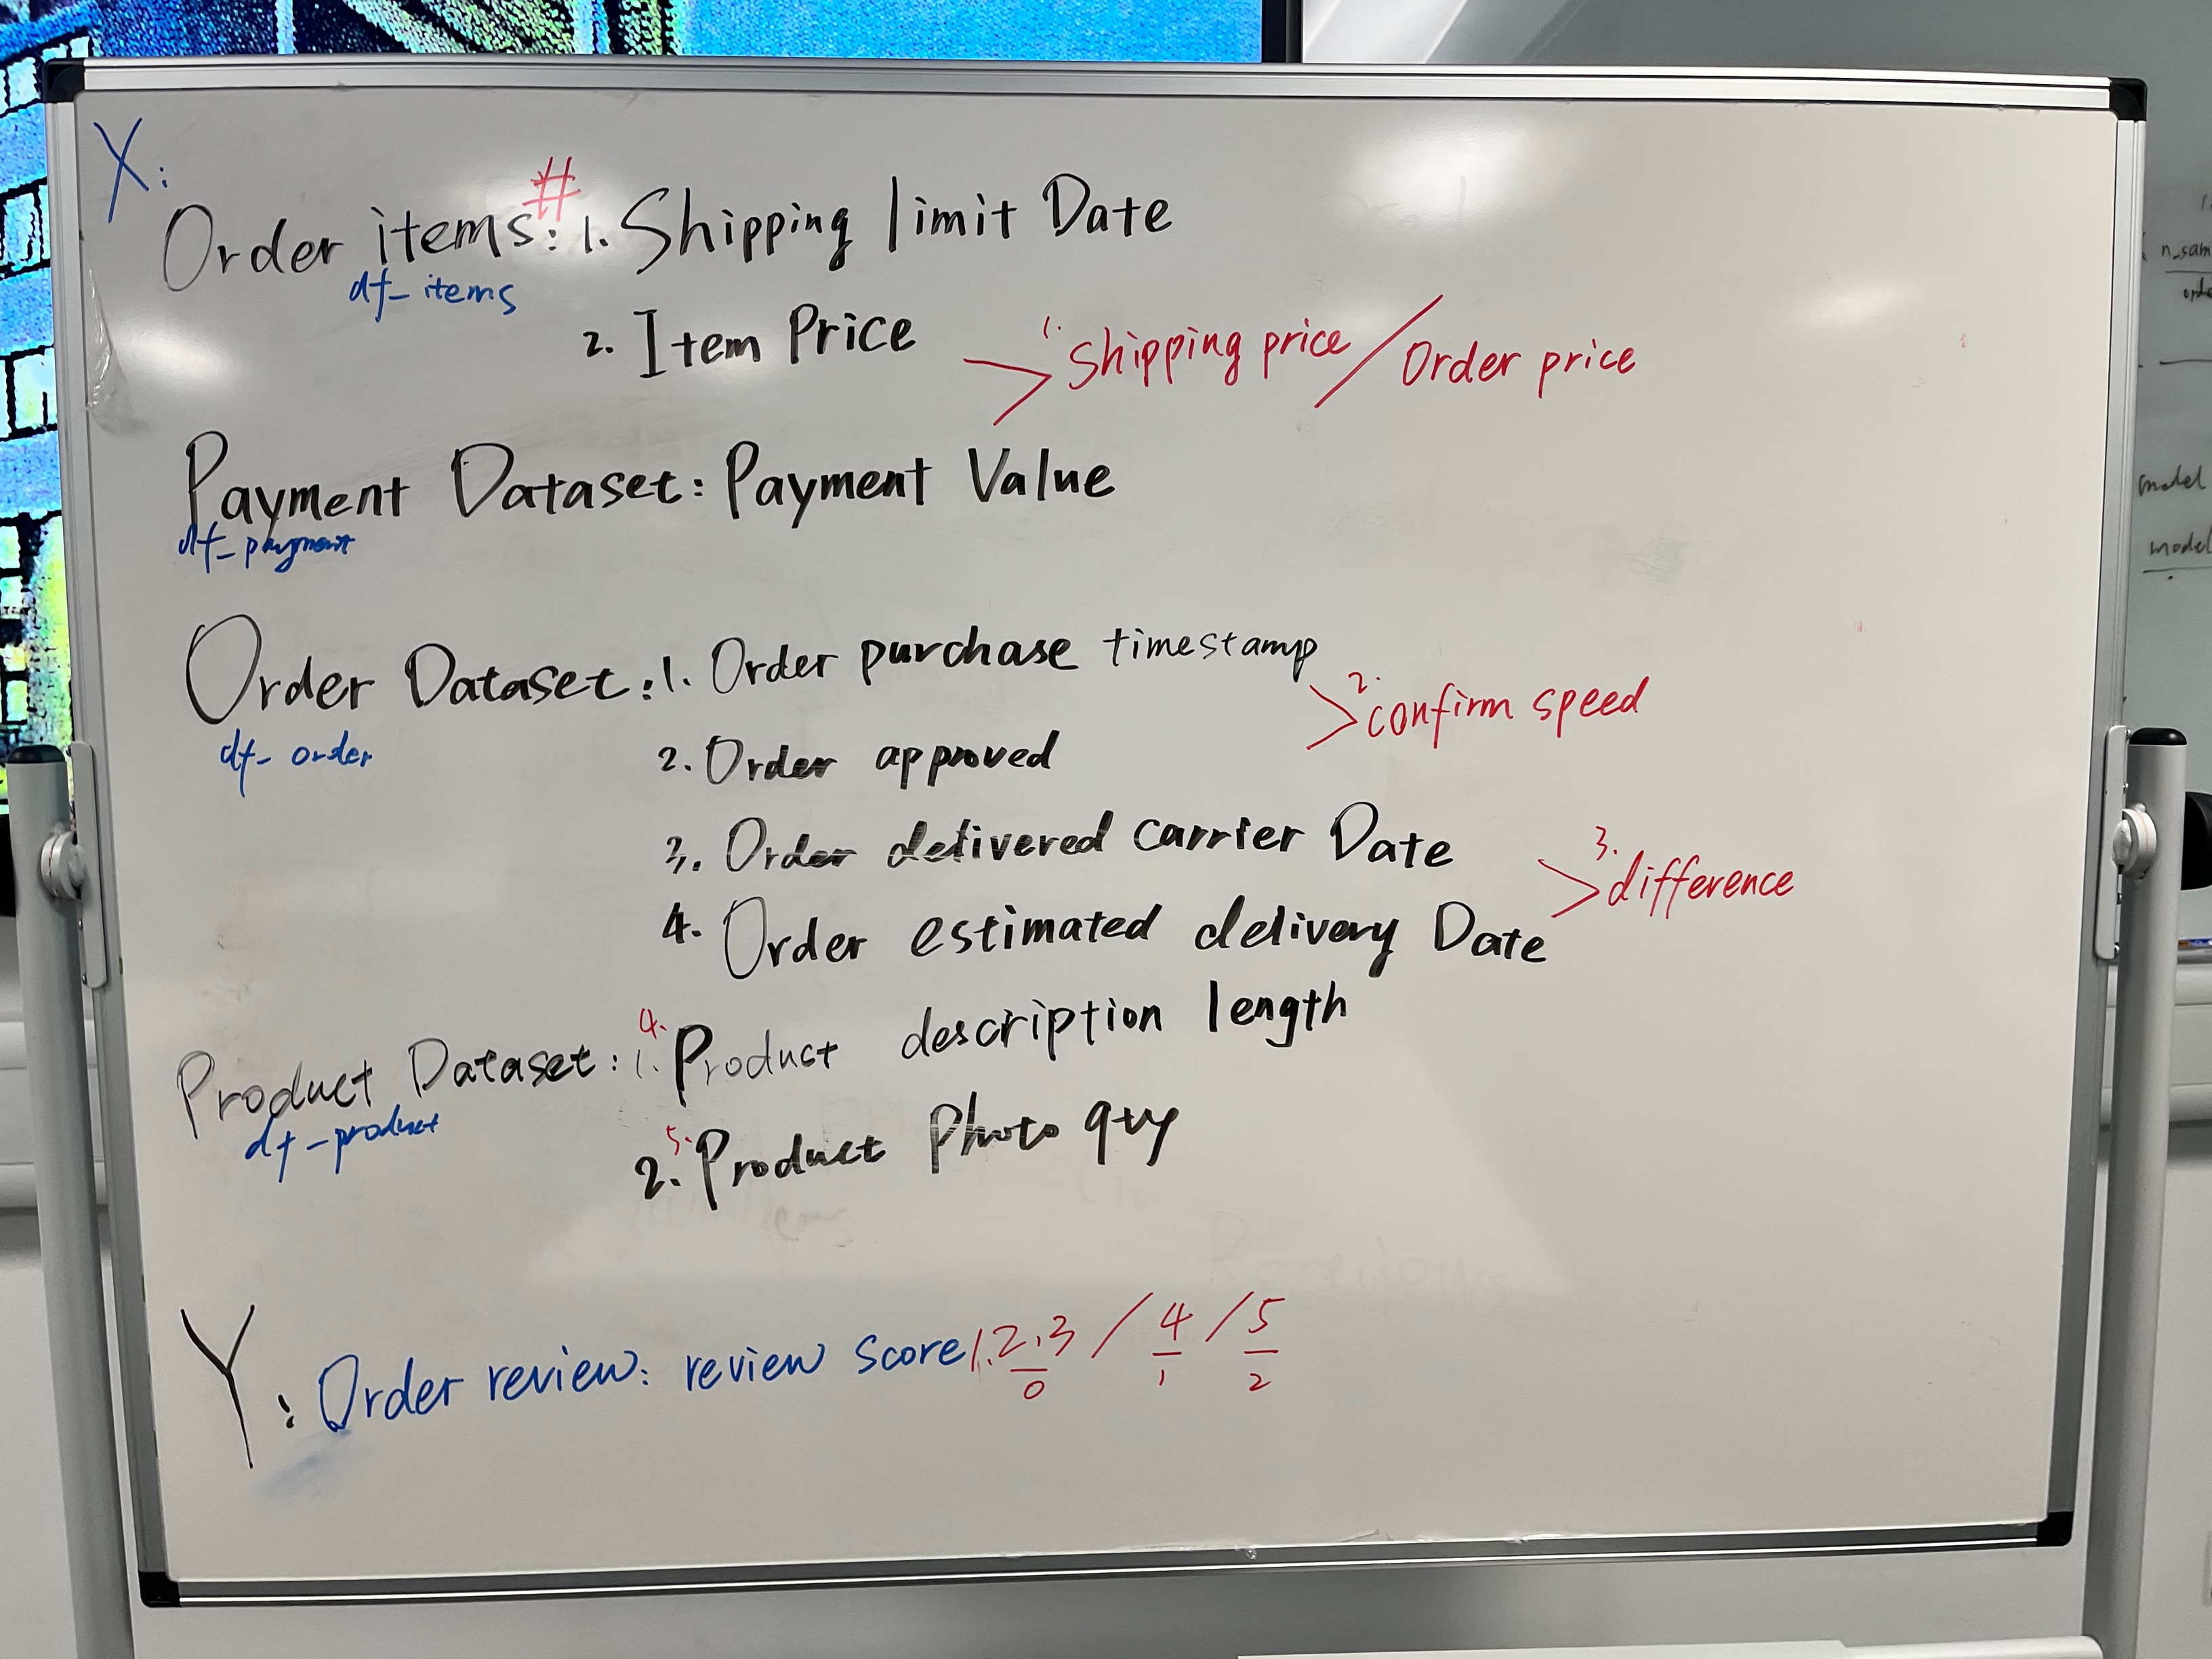 X:
Order items: # 1. Shipping limit Date
df_items
2. Item Price
1. Shipping price / Order price
Payment Dataset: Payment Value
df_payment
Order Dataset: 1. Order purchase timestamp
2. confirm speed
df_order
2. Order approved
3. Order delivered carrier Date
3. difference
4. Order estimated delivery Date
Product Dataset: 4. 1. Product description length
df_product
5. 2. Product Photo qty
Y: Order review: review score 1.2.3 / 4 / 5
0 1 2
n_sam
model
model